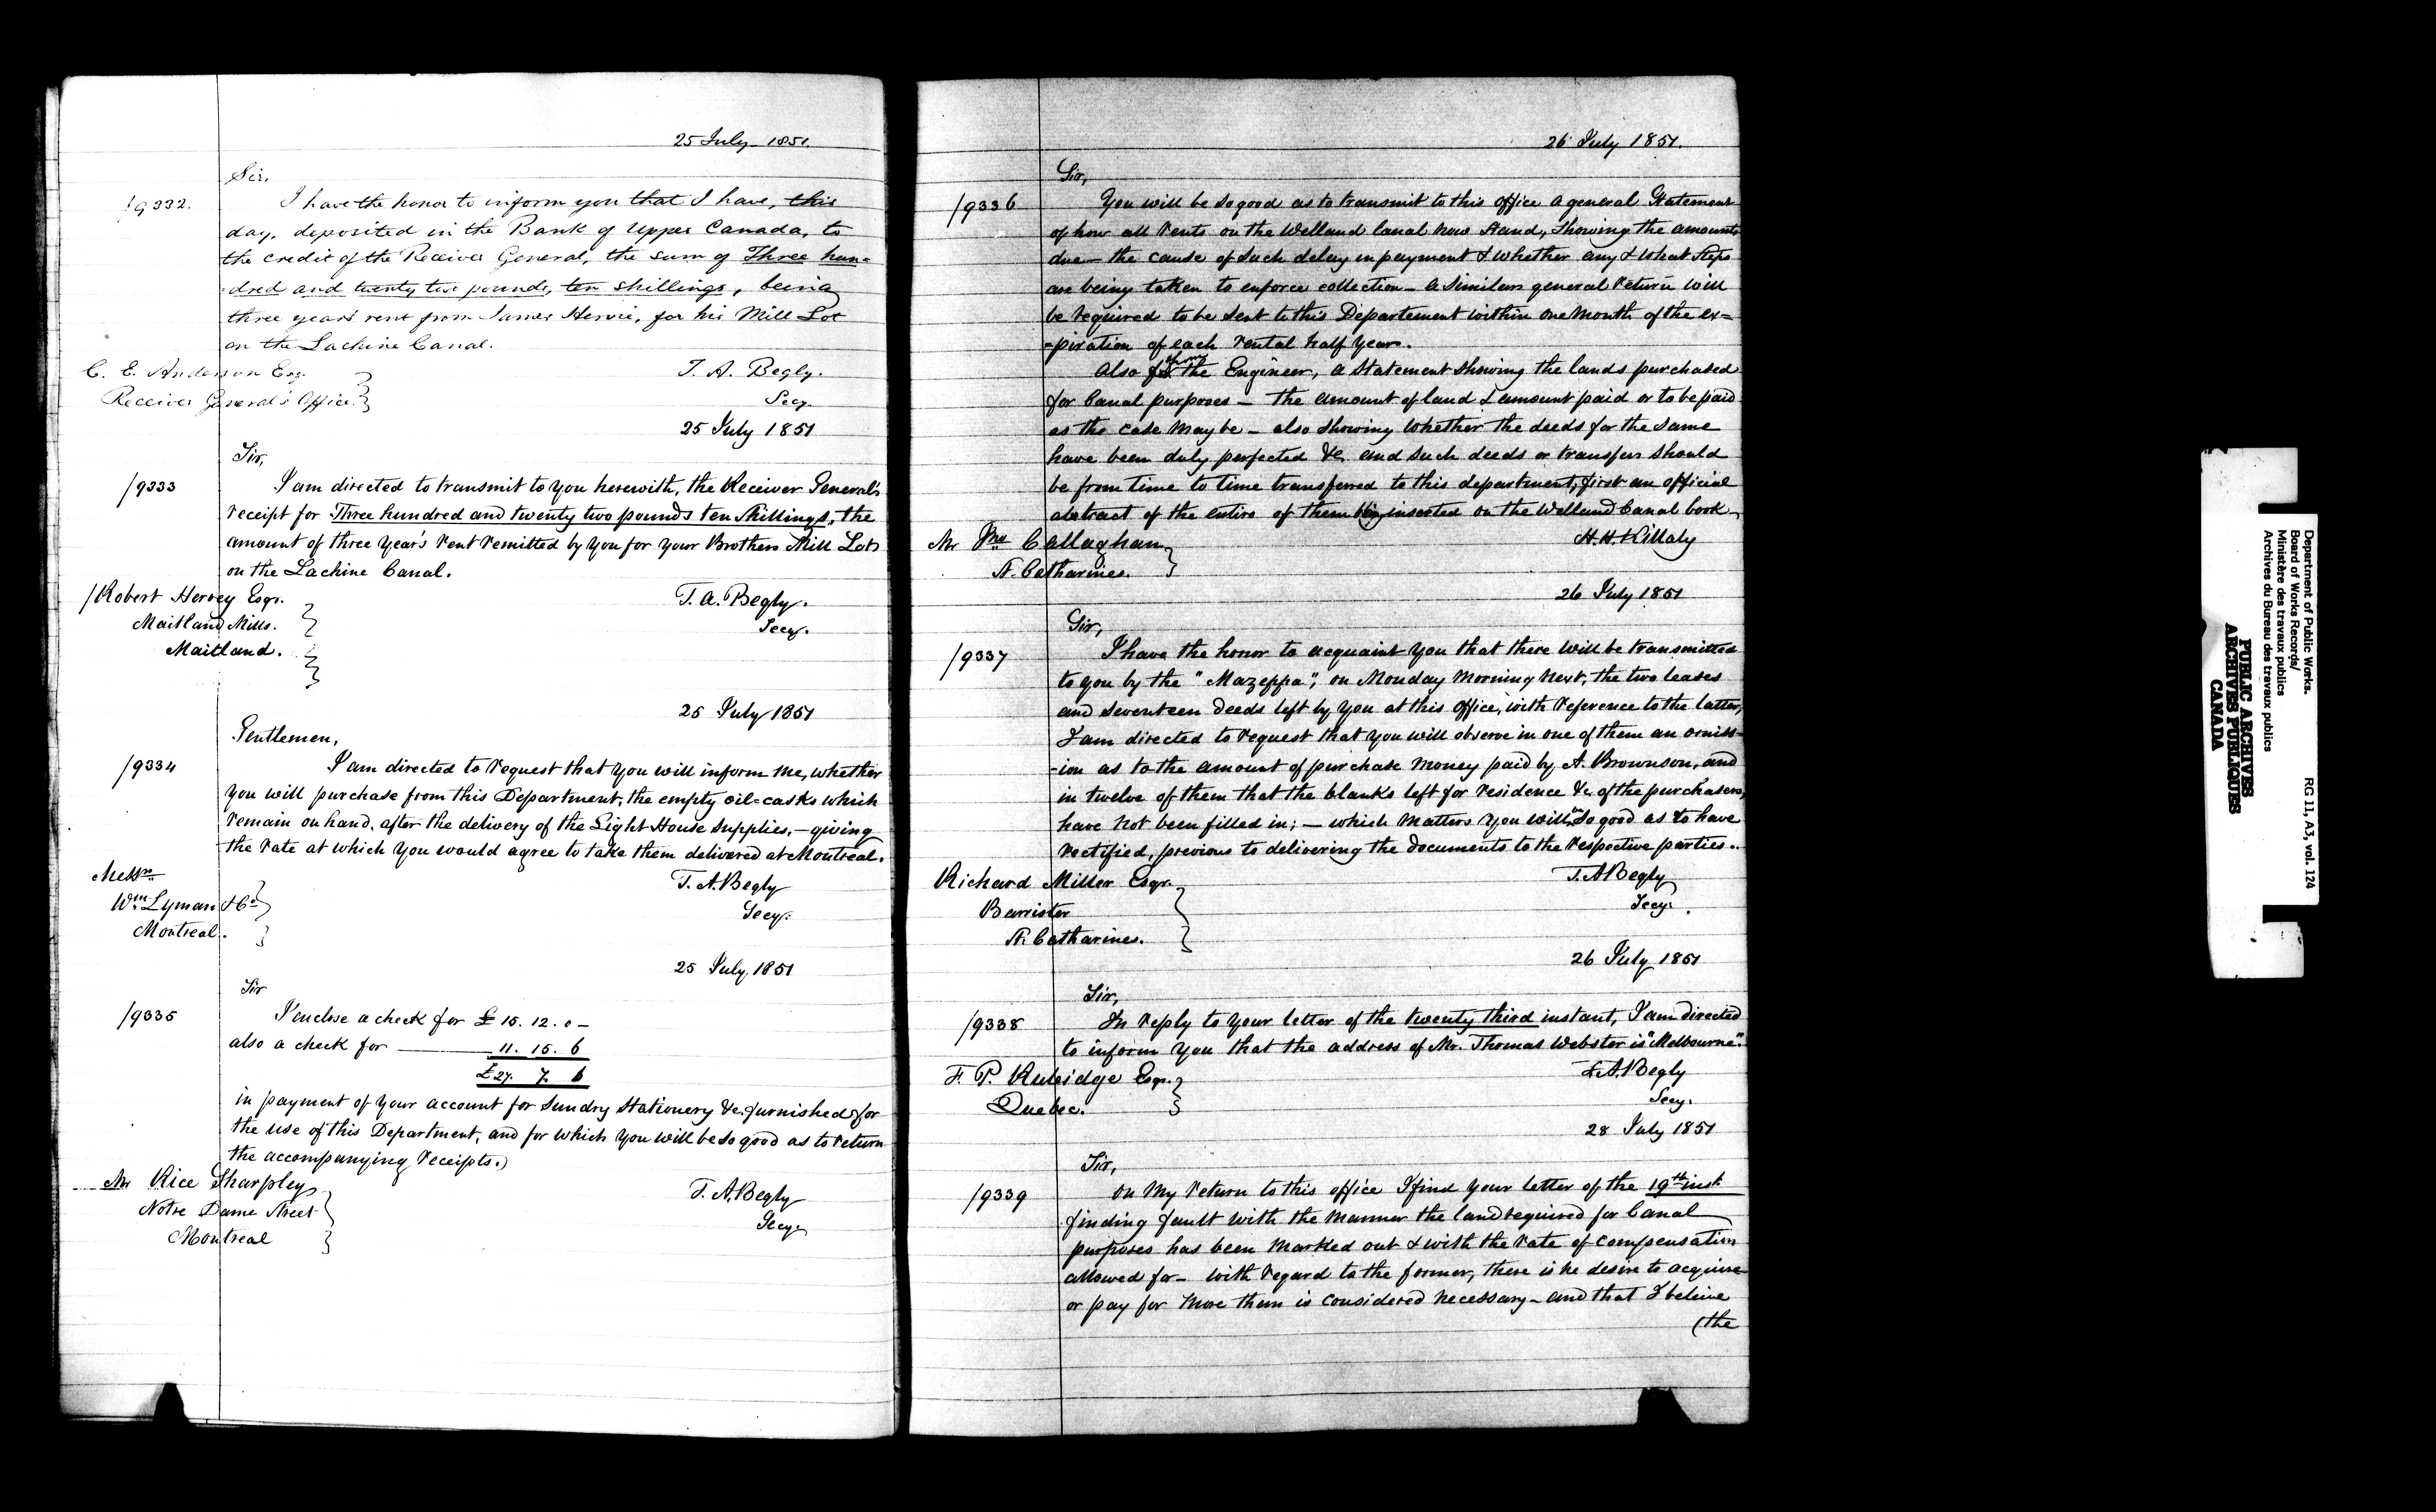 25 July 1851.
Sir,
19332. I have the honor to inform you that I have, this
day, deposited in the Bank of Upper Canada, to
the credit of the Receiver General, the sum of Three hun=
dred and twenty two pounds, ten shillings, being
three years' rent from James Hervie, for his Mill Lot
on the Lachine Canal.
C. E. Anderson Esq. T. A. Begly.
Receiver General's Office. Secy.
25 July 1851
Sir,
19333 I am directed to transmit to you herewith, the Receiver General's
receipt for Three hundred and twenty two pounds ten Shillings, the
amount of three Year's rent remitted by you for your Brothers Mill Lots
on the Lachine Canal.
Robert Hervey Esqr. T. A. Begly.
Maitland Mills. Secy.
Maitland.
25 July 1851
Gentlemen,
19334 I am directed to request that you will inform me, whether
you will purchase from this Department, the empty oil=casks which
remain on hand, after the delivery of the Light House Supplies, – giving
the rate at which you would agree to take them delivered at Montreal.
Messrs T. A. Begly
Wm Lyman & Co Secy.
Montreal.
25 July, 1851
Sir
19335 I enclose a check for £ 15. 12. 0 –
also a check for 11. 15. 6
£27. 7. 6
in payment of your account for sundry stationery &c. furnished for
the use of this Department, and for which you will be so good as to return
the accompanying receipts.
Mr Rice Sharpley T. A. Begly
Notre Dame Street Secy
Montreal
26 July 1851.
Sir,
19336 You will be so good as to transmit to this office a general Statement
of how all rents on the Welland Canal now stand, showing the amounts
due – the cause of such delay in payment & whether any & what steps
are being taken to enforce collection – a similar general return will
be required to be sent to this Departement within one month of the ex=
=piration of each rental half year.
Also from the Engineer, a statement showing the lands purchased
for Canal purposes – the amount of land & amount paid or to be paid
as the case may be – also showing whether the deeds for the same
have been duly perfected &c and such deeds or transfers should
be from time to time transferred to this department, first an official
abstract of the entire of them being inserted on the Welland Canal book
Mr Jno Callaghan H. H. Killaly
St. Catharines.
26 July 1851
Sir,
19337 I have the honor to acquaint you that there will be transmitted
to you by the "Mazeppa", on Monday morning next, the two leases
and seventeen deeds left by you at this office, with reference to the latter,
I am directed to request that you will observe in one of them an omiss-
-ion as to the amount of purchase money paid by A. Brownson, and
in twelve of them that the blanks left for residence &c. of the purchasers,
have not been filled in; – which matters you will be so good as to have
rectified, previous to delivering the documents to the respective parties.
Richard Miller Esqr. T. A Begly
Barrister Secy.
St. Catharines.
26 July 1851
Sir,
19338 In reply to your letter of the twenty third instant, I am directed
to inform you that the address of Mr. Thomas Webster is "Melbourne".
F. P. Rubidge Esqr. T. A. Begly
Quebec. Secy.
28 July 1851
Sir,
19339 On my return to this office I find your letter of the 19th inst
finding fault with the manner the land required for Canal
purposes has been marked out & with the rate of compensation
allowed for – with regard to the former, there is no desire to acquire
or pay for more than is considered necessary – and that I believe
(the
Department of Public Works.
Board of Works Records/
Ministère des travaux publics
Archives du Bureau des travaux publics
RG 11, A3, vol. 124
PUBLIC ARCHIVES
ARCHIVES PUBLIQUES
CANADA